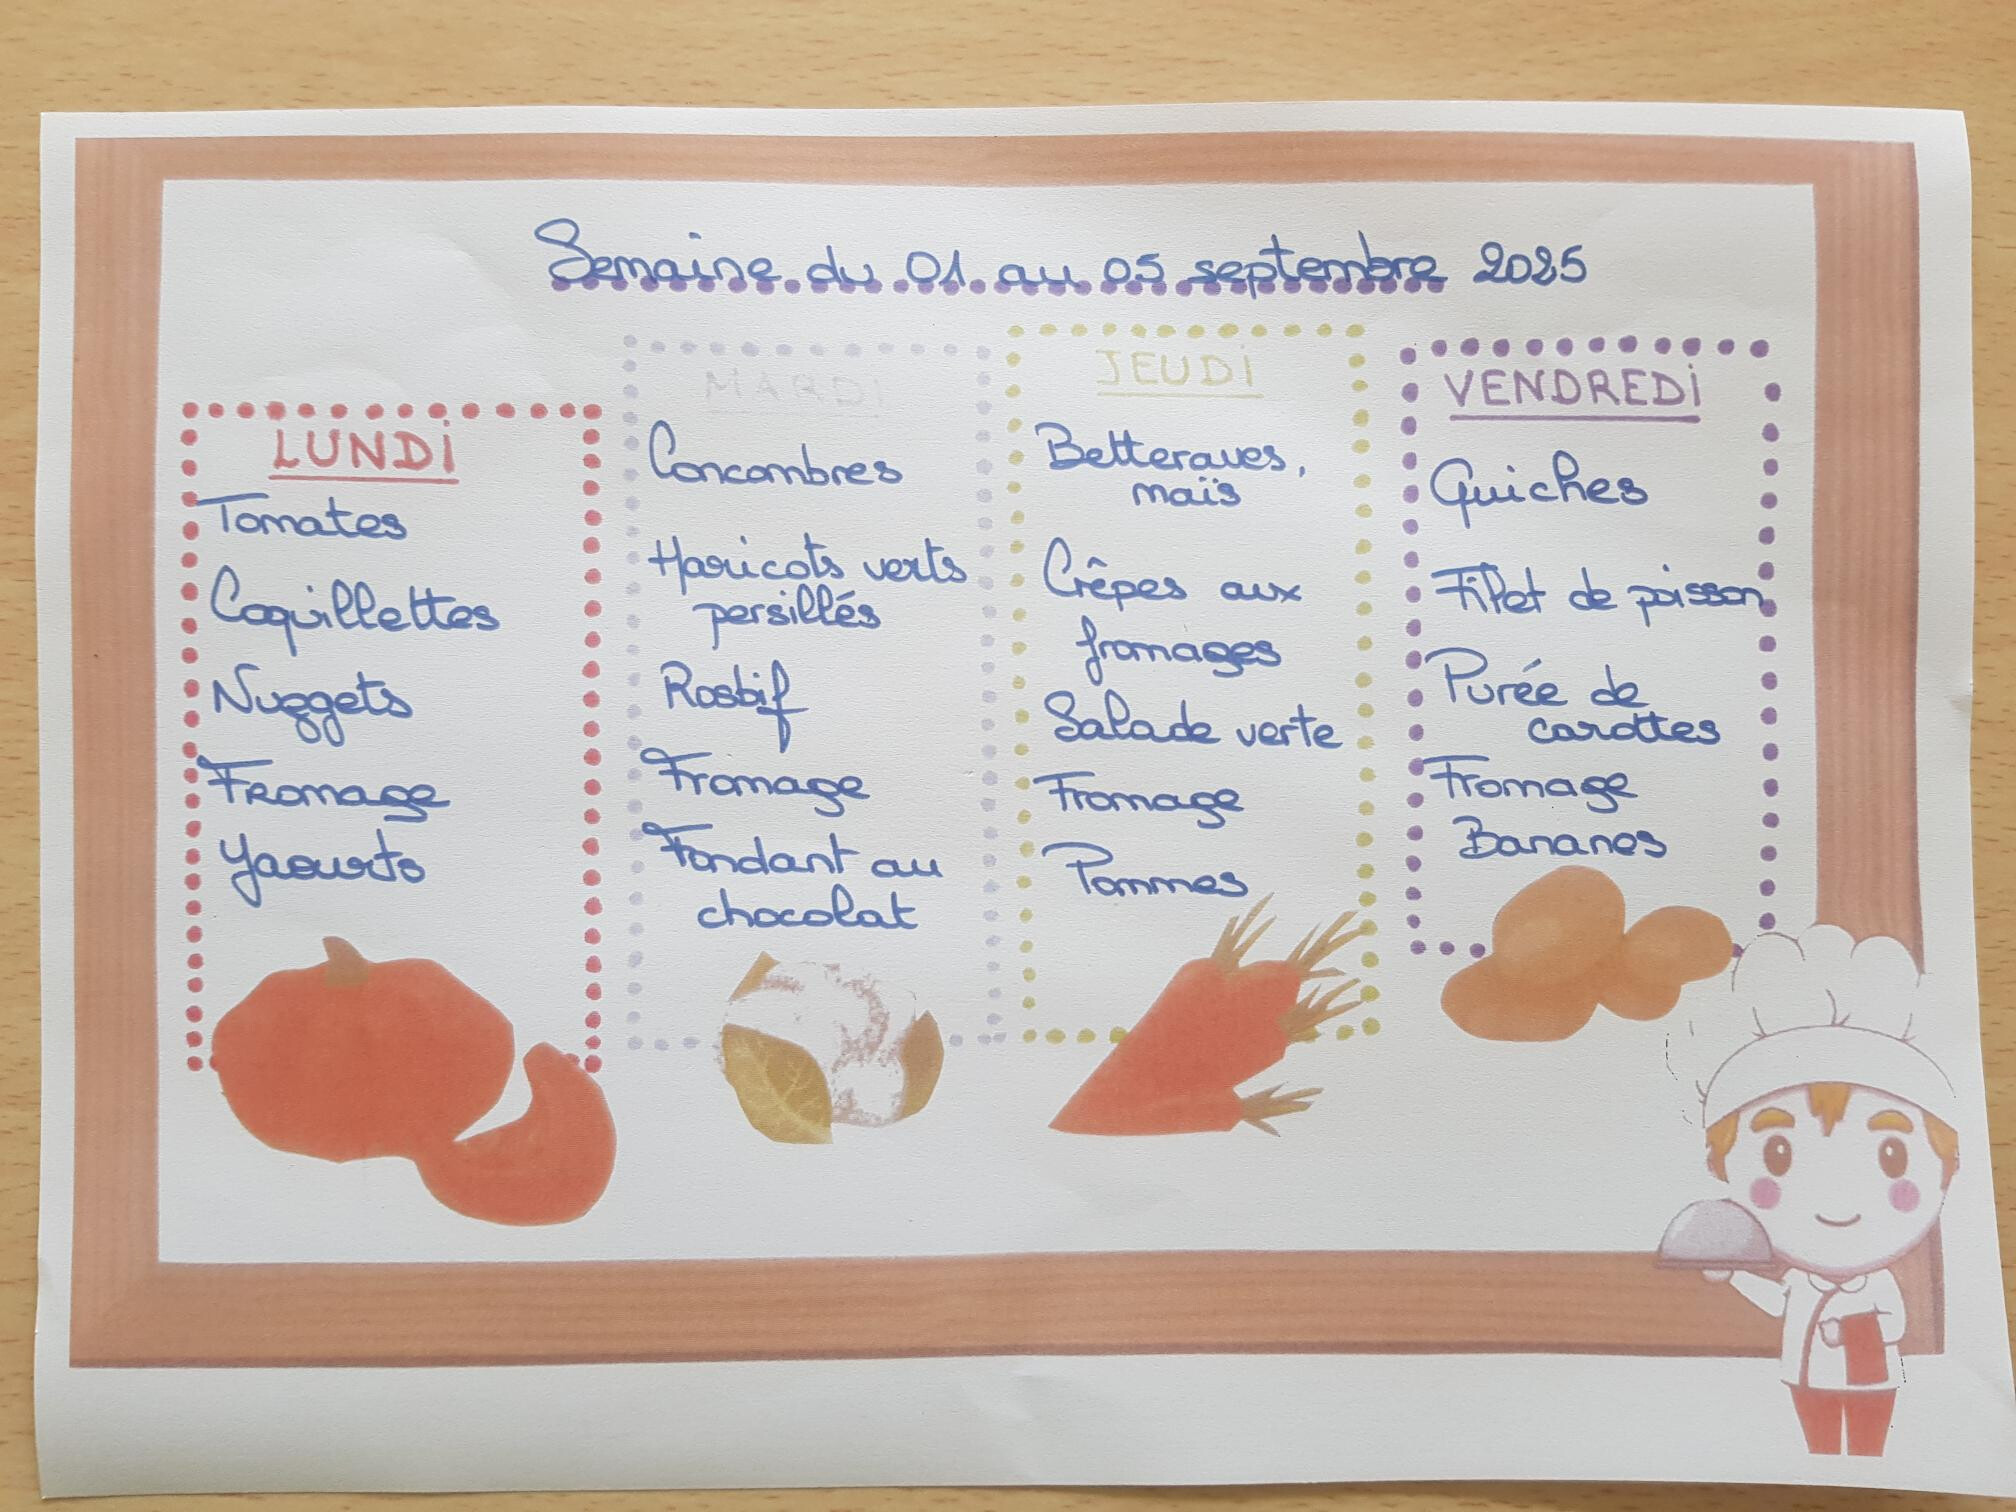 Semaine du 01 au 05 septembre 2025
LUNDI
Tomates
Coquillettes
Nuggets
Fromage
Yaourts
MARDI
Concombres
Haricots verts
persillés
Rosbif
Fromage
Fondant au
chocolat
JEUDI
Betteraves,
maïs
Crêpes aux
fromages
Salade verte
Fromage
Pommes
VENDREDI
Quiches
Filet de poisson
Purée de
carottes
Fromage
Bananes